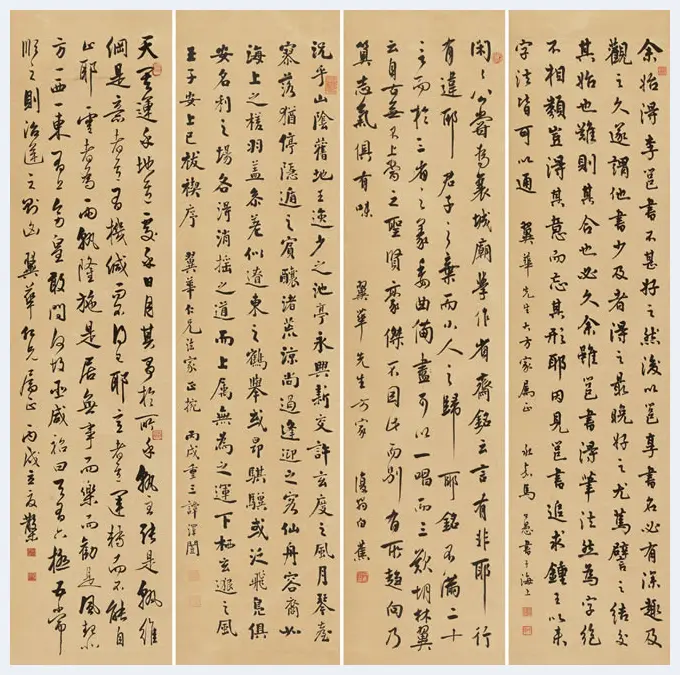 余始得李邕書不甚好之然疑以邕享書名必有深趣及
觀之久遂謂他書少及者得之最晚好之尤篤譬之結交
其始也難則其合也必久余雖邕書得筆法然為字絕
不相類豈得其意而忘其形耶因見邕書追求鍾王以來
字法皆可以通 翼華先生大方家屬正 永嘉馬公愚書于海上
閑閑公嘗為襄城廟學作省齋銘云言有非耶行
有違耶君子之棄而小人之歸耶銘不滿二十
言而於三省之義委曲備盡可以一唱而三歎胡林翼
云自古無不上當之聖賢豪傑不因此而別有所趨向乃
算志氣俱有味 翼華先生方家 復翁白蕉
況乎山陰舊地王逸少之池亭永興新交許玄度之風月琴臺
寥落猶停隱遁之賓釀渚荒涼尚遏逢迎之客仙舟容裔若
海上之槎羽蓋參差似遼東之鶴舉或昂騏驥或泛飛鳧俱
安名利之場各得逍搖之道而上屬無為之運下栖玄遯之風
王子安上巳祓禊序 翼華仁兄法家正捥 丙戌重三譚澤闓
天其運乎地其處乎日月其爭於所乎孰主張是孰維
綱是意者其有機緘而不得已耶意者其運轉而不能自
止耶雲者為雨孰隆施是居無事而樂而勸是風起北
方一西一東有上彷徨敢問何故巫咸祒曰天有六極五常
順之則治逆之則凶 翼華仁兄屬正 丙戌立夏